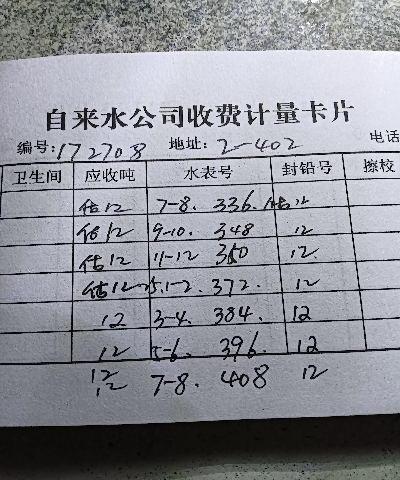 自来水公司收费计量卡片
编号:172708 地址:2-402 电话
卫生间 应收吨 水表号 封铅号 擦校
估12 7-8. 336. 估12
估12 9-10. 348 12
估12 11-12 360 12.
估12 25.1-2. 372. 12
12 3-4. 384. 12
12 5-6. 396. 12
12
12 7-8. 408 12